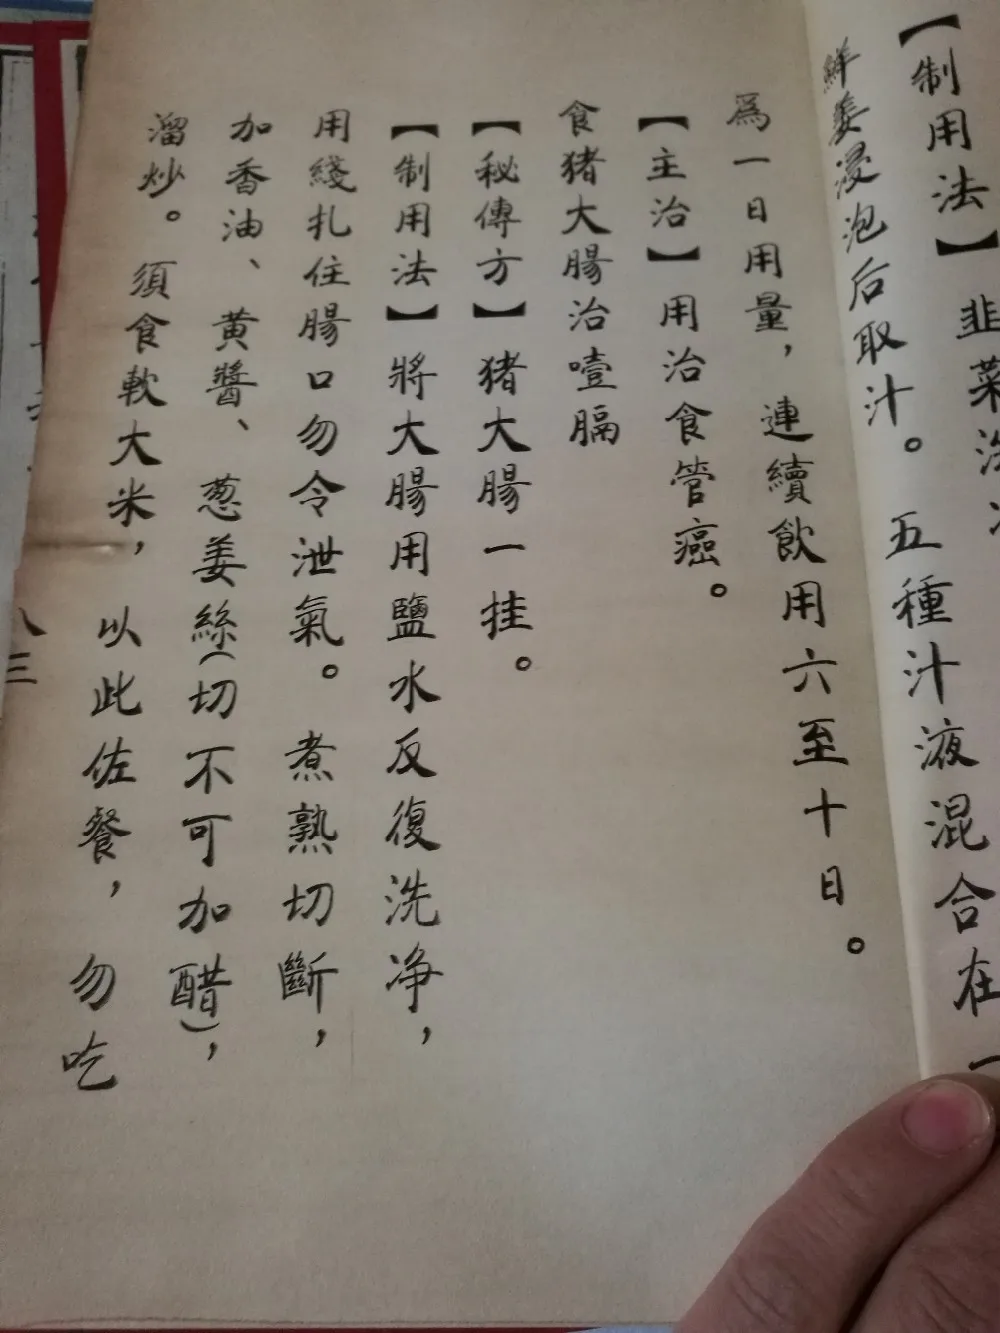 【制用法】韭菜洗
鮮姜浸泡后取汁。五種汁液混合在一
爲一日用量，連續飲用六至十日。
【主治】用治食管癌。
食猪大腸治噎膈
【秘傳方】猪大腸一挂。
【制用法】將大腸用鹽水反復洗净，
用綫扎住腸口勿令泄氣。煮熟切斷，
加香油、黄醬、葱姜絲(切不可加醋)，
溜炒。須食軟大米，以此佐餐，勿吃
八三